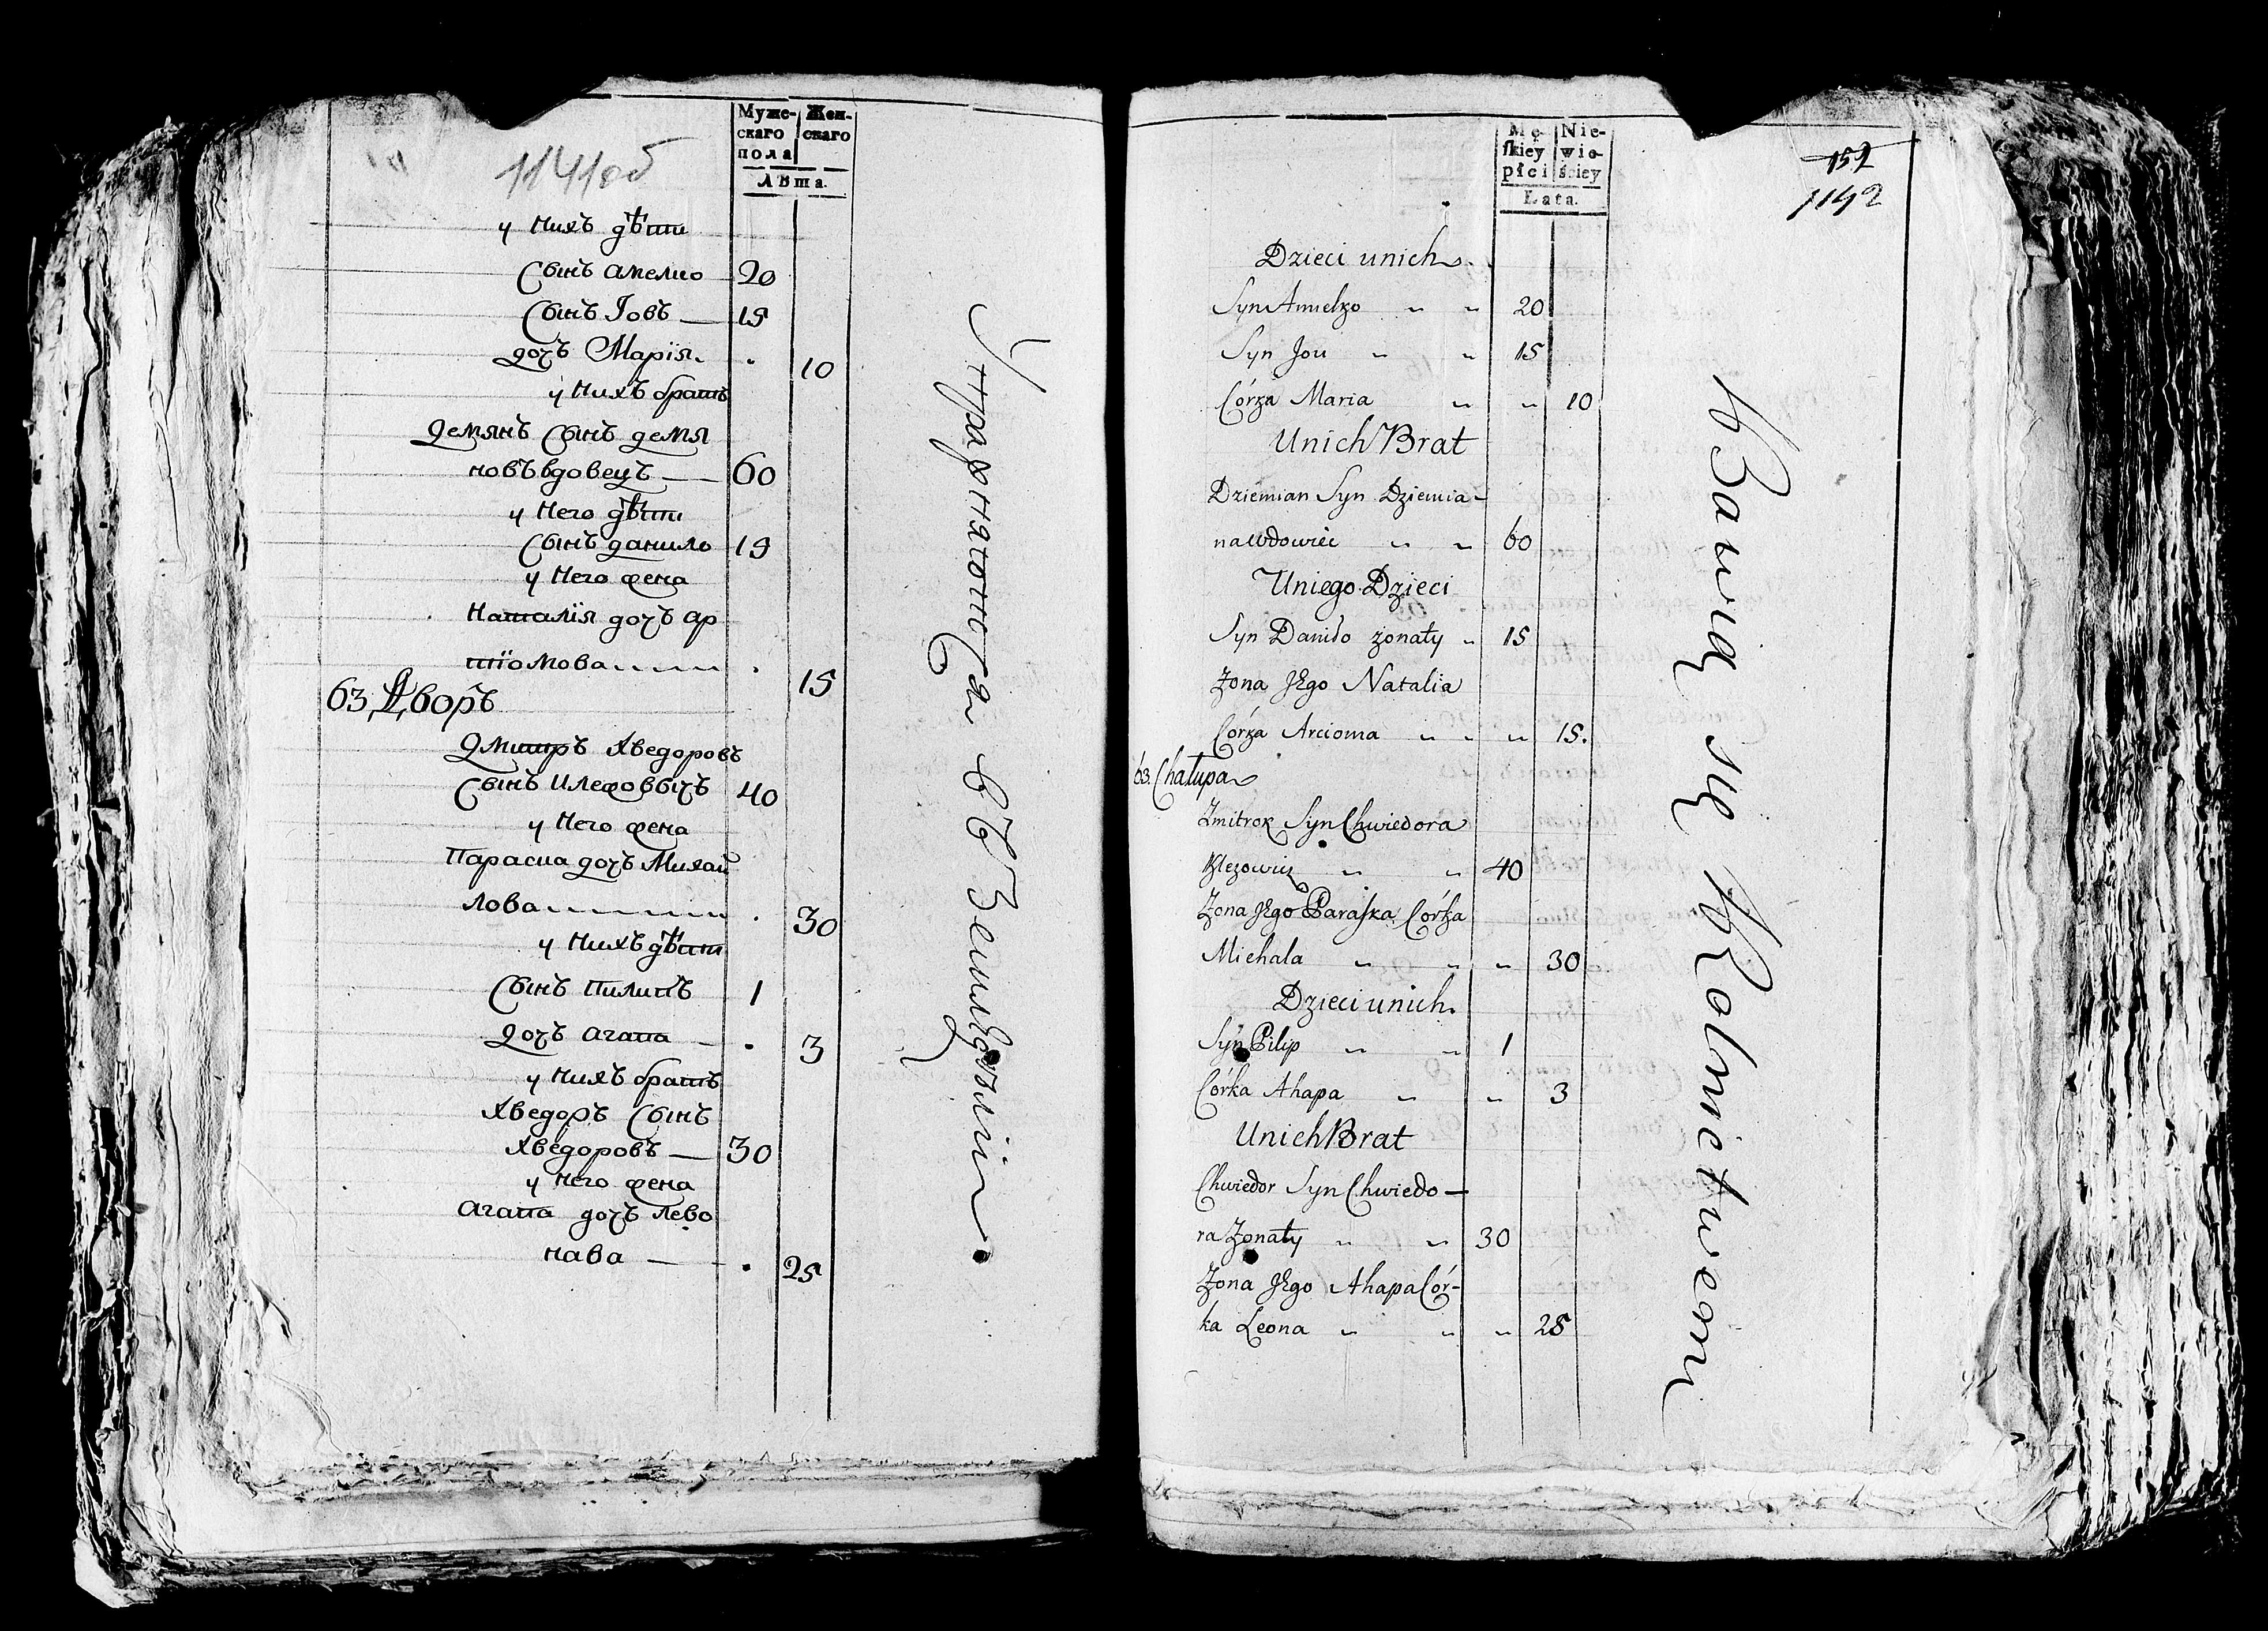 Муже-
скаго
пола
Жен-
скаго
Лѣта.
1141об
у нихъ дѣти
Сынъ амелко 20
Сынъ Іовъ 15
дочь Марія 10
у нихъ братъ
демянъ Сынъ демя
новъ вдовецъ 60
у него дѣти
Сынъ данило 15
у него жена
Наталія дочь ар
тіомова 15
63 Дворъ
дмитръ хведоровъ
Сынъ
40
у него жена
Параска дочь Михай
лова 30
у нихъ дѣти
Сынъ пилипъ 1
дочь агапа 3
у нихъ братъ
хведоръ Сынъ
хведоровъ 30
у него жена
агапа дочь лево
нава 25
Упражняются въ Земледѣліи
Mę-
skiey
płci
Nie-
wie-
ściey
Lata.
152
1142
Dzieci unich
Syn Amelko " " 20
Syn Jou " " 15
Córka Maria " " 10
Unich Brat
Dziemian Syn Dziemia-
na wdowiec " " 60
Uniego Dzieci
Syn Daniło żonaty " 15
Żona Jego Natalia
Córka Arcioma " " " 15.
63. Chałupa
Zmitrok Syn Chwiedora
" " 40
Żona Jego Paraska Córka
Michała " " " 30
Dzieci unich
Syn Pilip " " 1
Córka Ahapa " " 3
Unich Brat
Chwiedor Syn Chwiedo-
ra Żonaty " " 30
Żona Jego Ahapa Cór-
ka Leona " " " 25
Bawią się Rolnictwem